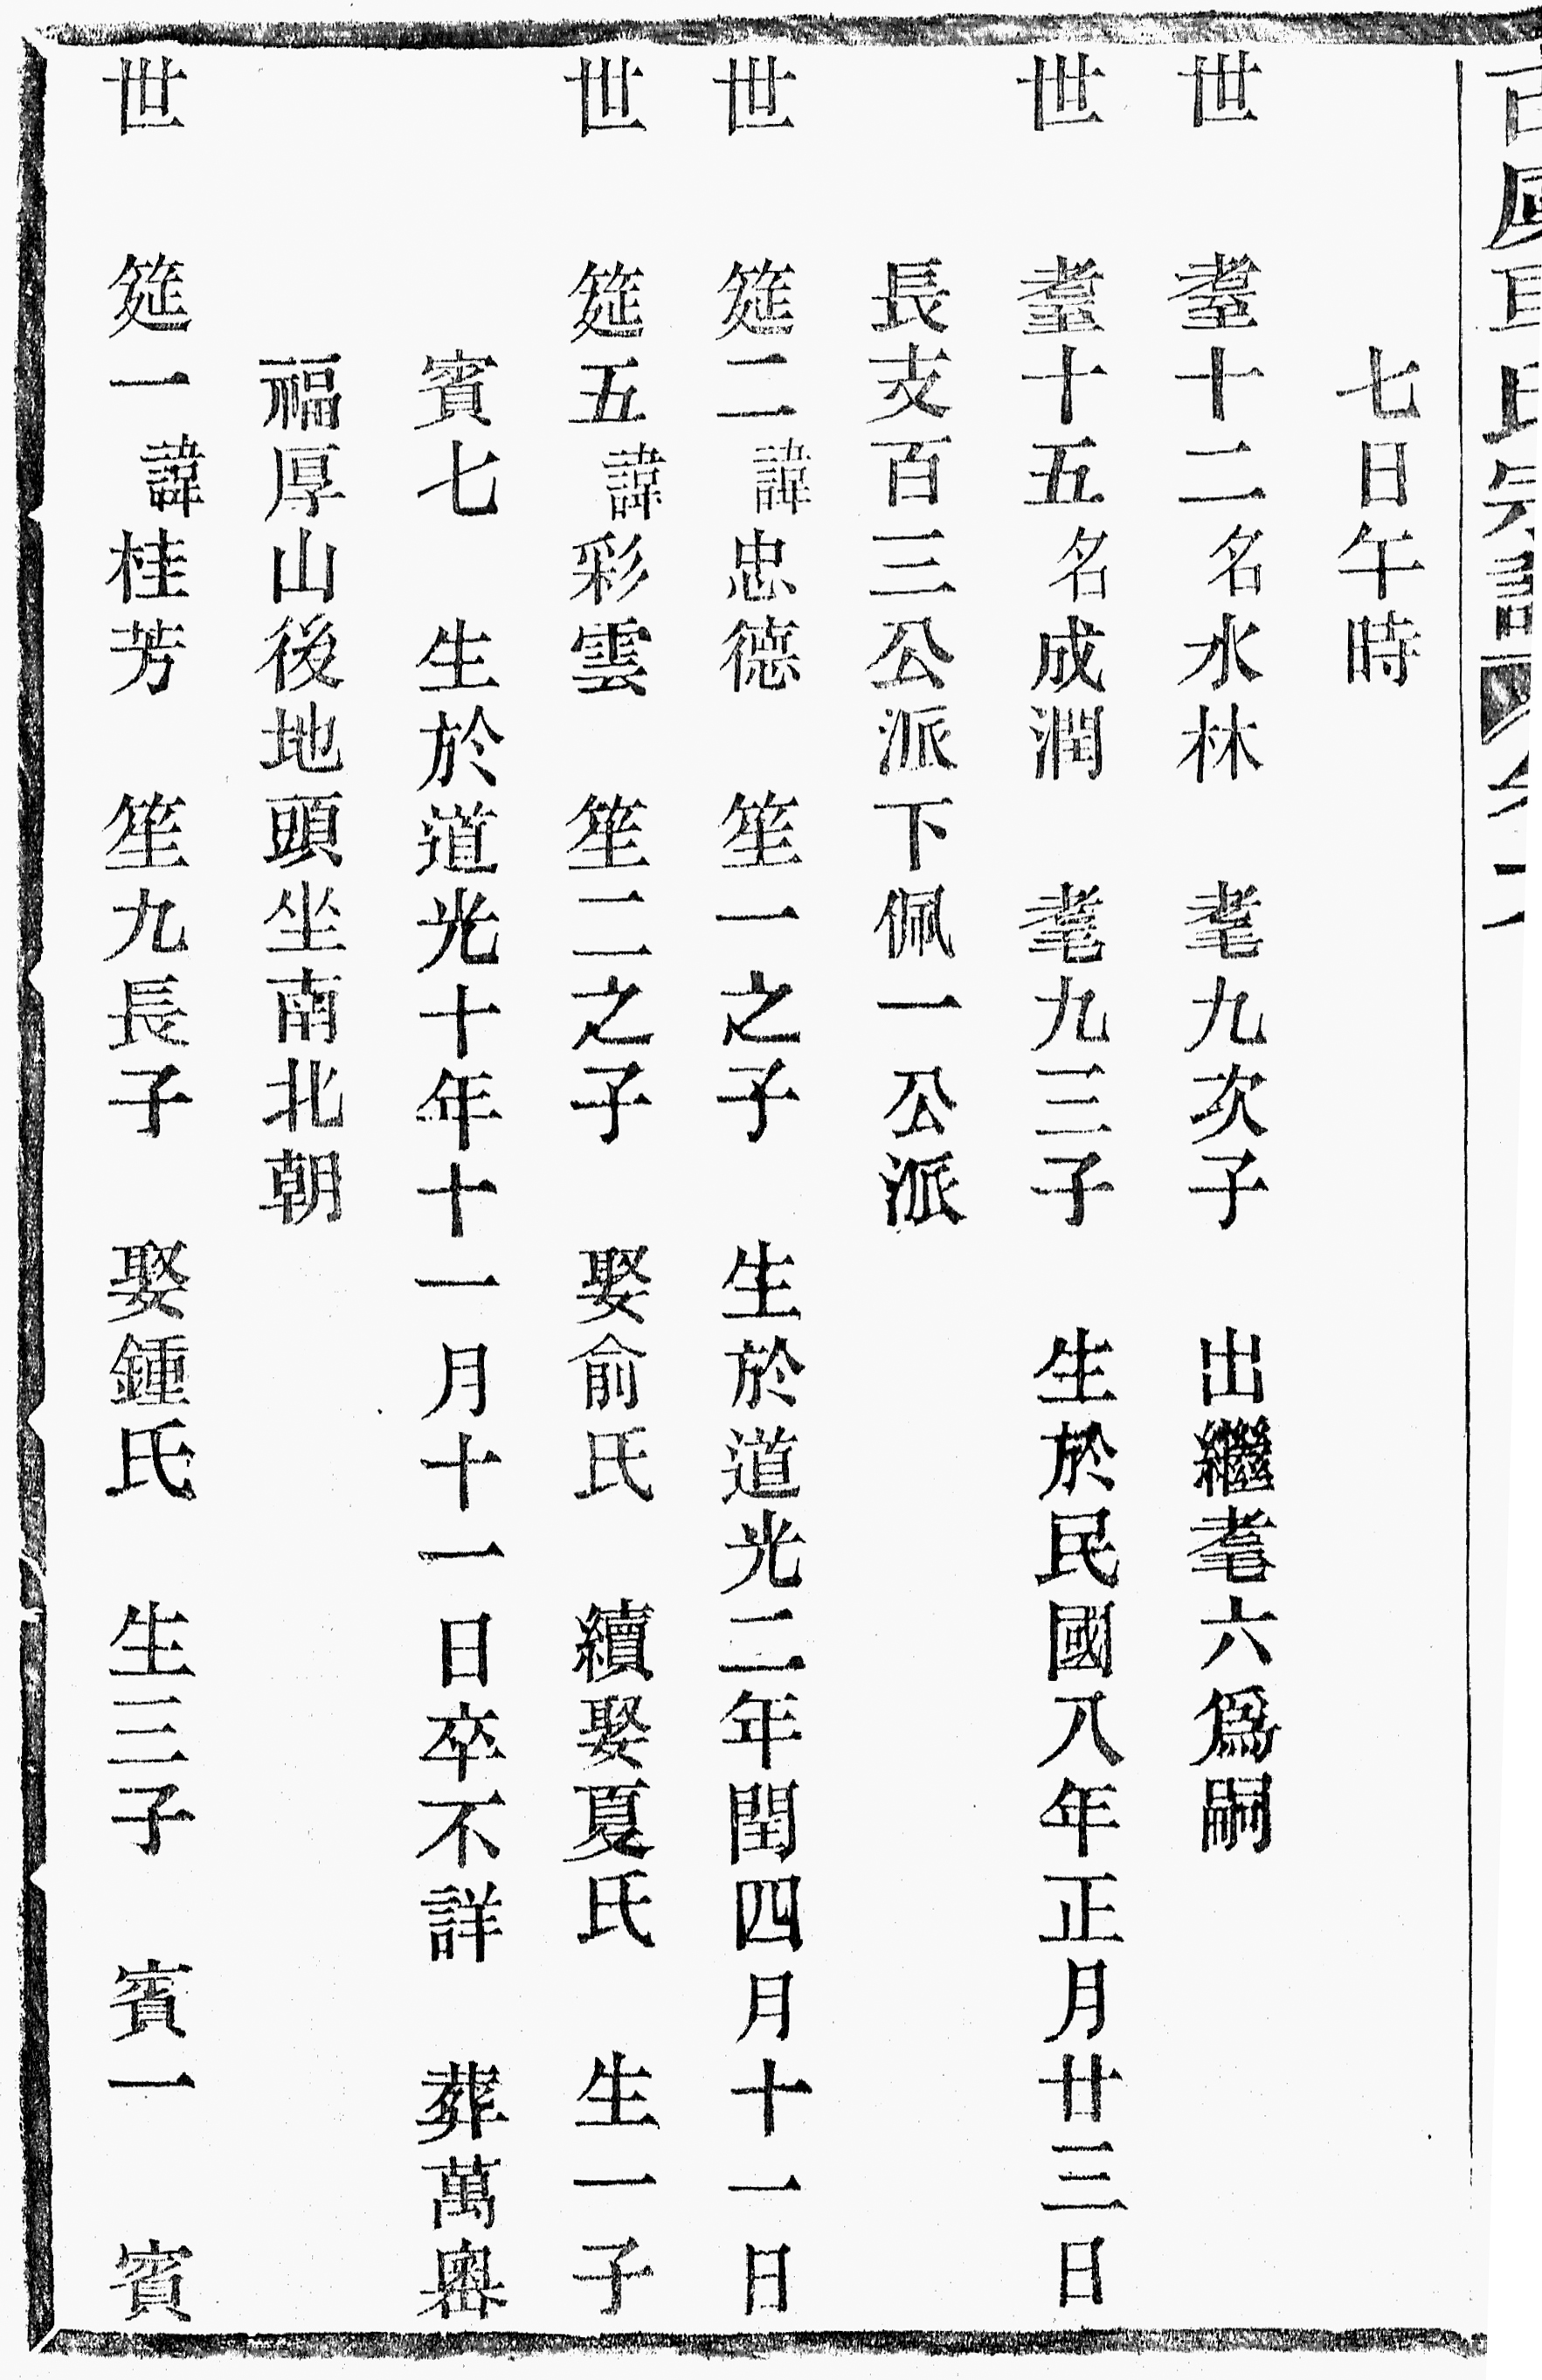 七日午時
世 耋十二名水林 耄九次子 出繼耄六爲嗣
世 耋十五名成潤 耄九三子 生於民國八年正月廿三日
長支百三公派下佩一公派
世 筵二諱忠德 笙一之子 生於道光二年閏四月十一日
世 筵五諱彩雲 笙二之子 娶俞氏 續娶夏氏 生一子
賓七 生於道光十年十一月十一日卒不詳 葬萬奧
福厚山後地頭坐南北朝
世 筵一諱桂芳 笙九長子 娶鍾氏 生三子 賓一 賓